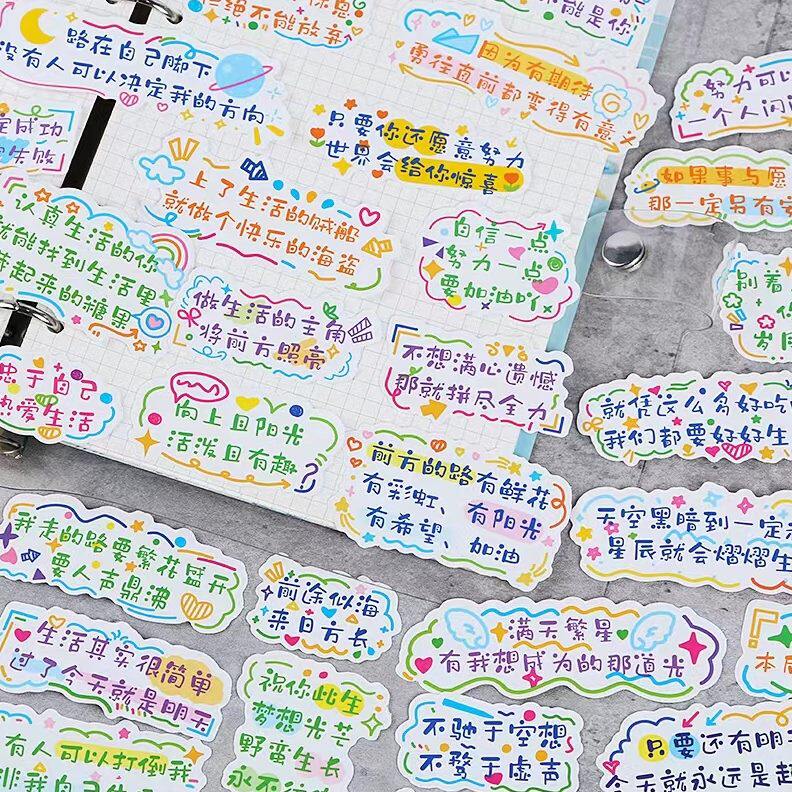 绝不能放弃
不能是你
路在自己脚下
没有人可以决定我的方向
因为有期待
勇往直前都变得有意义
努力可以
一个人闪闪
定成功
失败
只要你还愿意努力
世界会给你惊喜
如果事与愿
那一定另有安
上了生活的贼船
就做个快乐的海盗
认真生活的你
就能找到生活里
藏起来的糖果
自信一点
努力一点
要加油吖
别着
你
岁月
做生活的主角
将前方照亮
不想满心遗憾
那就拼尽全力
忠于自己
热爱生活
向上且阳光
活泼且有趣
就凭这么多好吃
我们都要好好生
前方的路有鲜花
有彩虹、有阳光
有希望、加油
天空黑暗到一定
星辰就会熠熠生
我走的路要繁花盛开
要人声鼎沸
前途似海
来日方长
满天繁星
有我想成为的那道光
生活其实很简单
过了今天就是明天
祝你此生
梦想光芒
野蛮生长
永不
不驰于空想
不骛于虚声
本
有人可以打倒我
非我自己
只要还有明
今天就永远是起